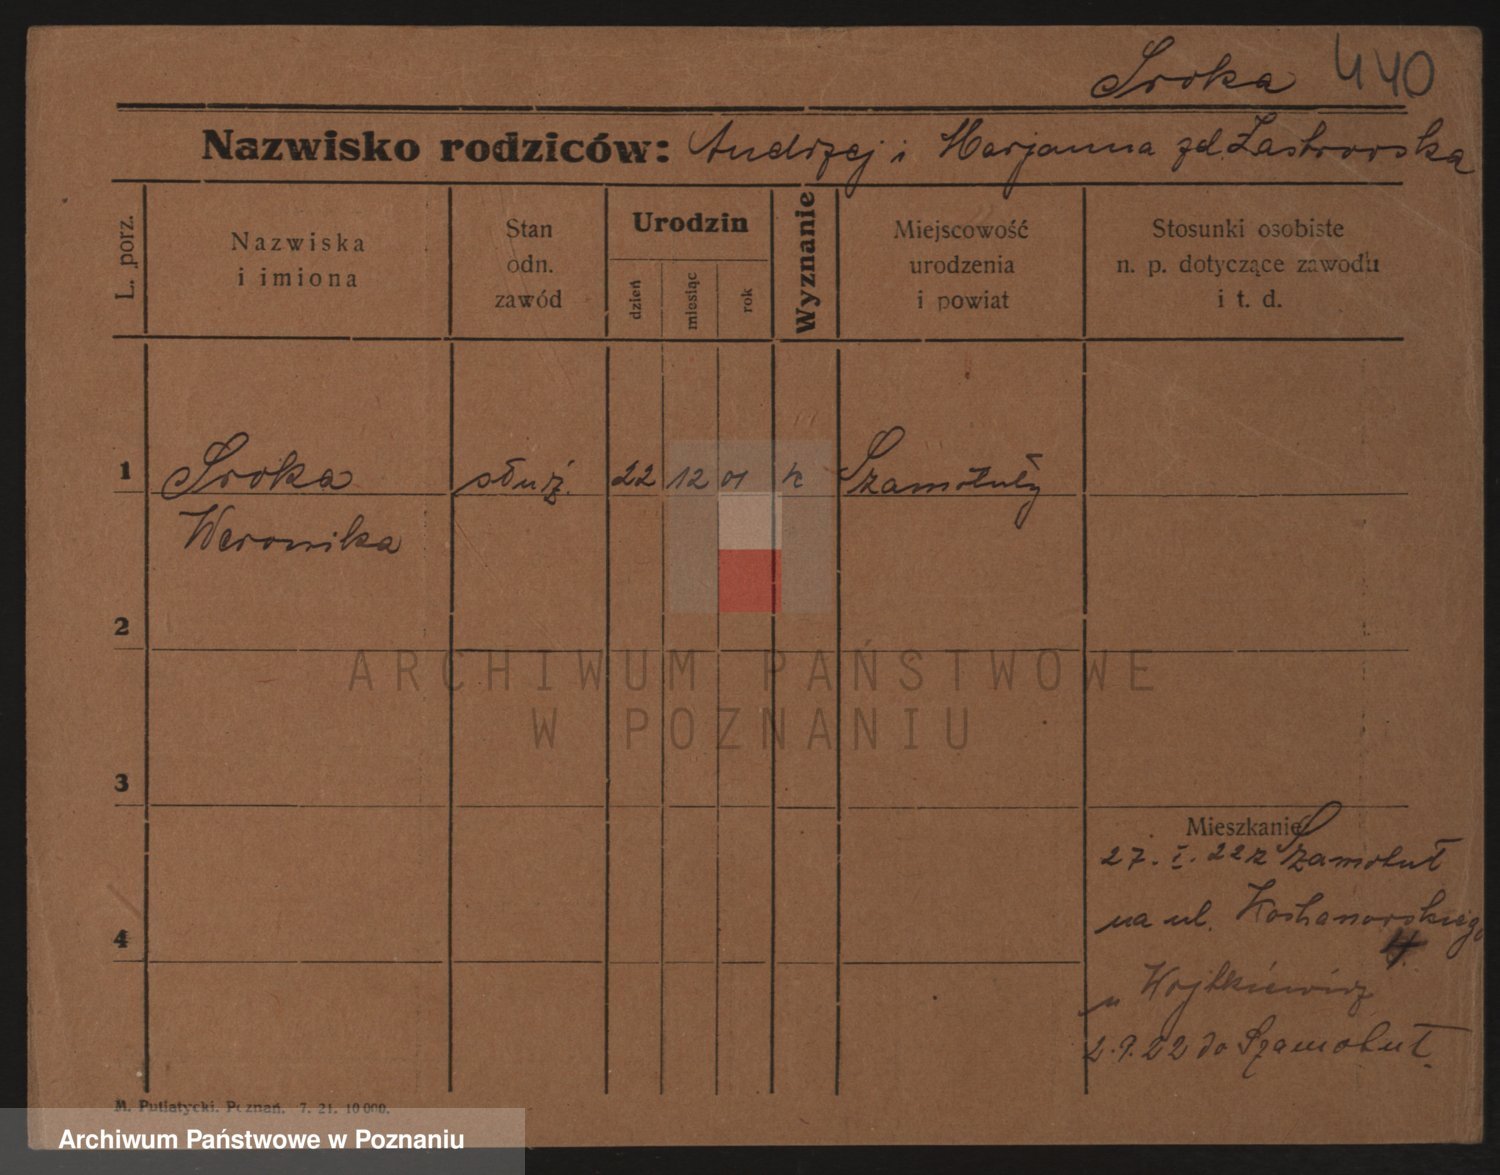 Sroka 440
Nazwisko rodziców: Andrzej i Marjanna zd. Zastrowska
L. porz.
Nazwiska
i imiona
Stan
odn.
zawód
Urodzin
dzień
miesiąc
rok
Wyznanie
Miejscowość
urodzenia
i powiat
Stosunki osobiste
n. p. dotyczące zawodu
i t. d.
1 Sroka służ. 22 12 01 k Szamotuły
Weronika
2
3
4
ARCHIWUM PAŃSTWOWE
W POZNANIU
Mieszkanie
27. I. 22 z Szamotuł
na ul. Kochanowskiego
4
u Wojtkiewicz
2.9.22 do Szamotuł.
M. Putiatycki. Poznań. 7. 21. 10 000.
Archiwum Państwowe w Poznaniu